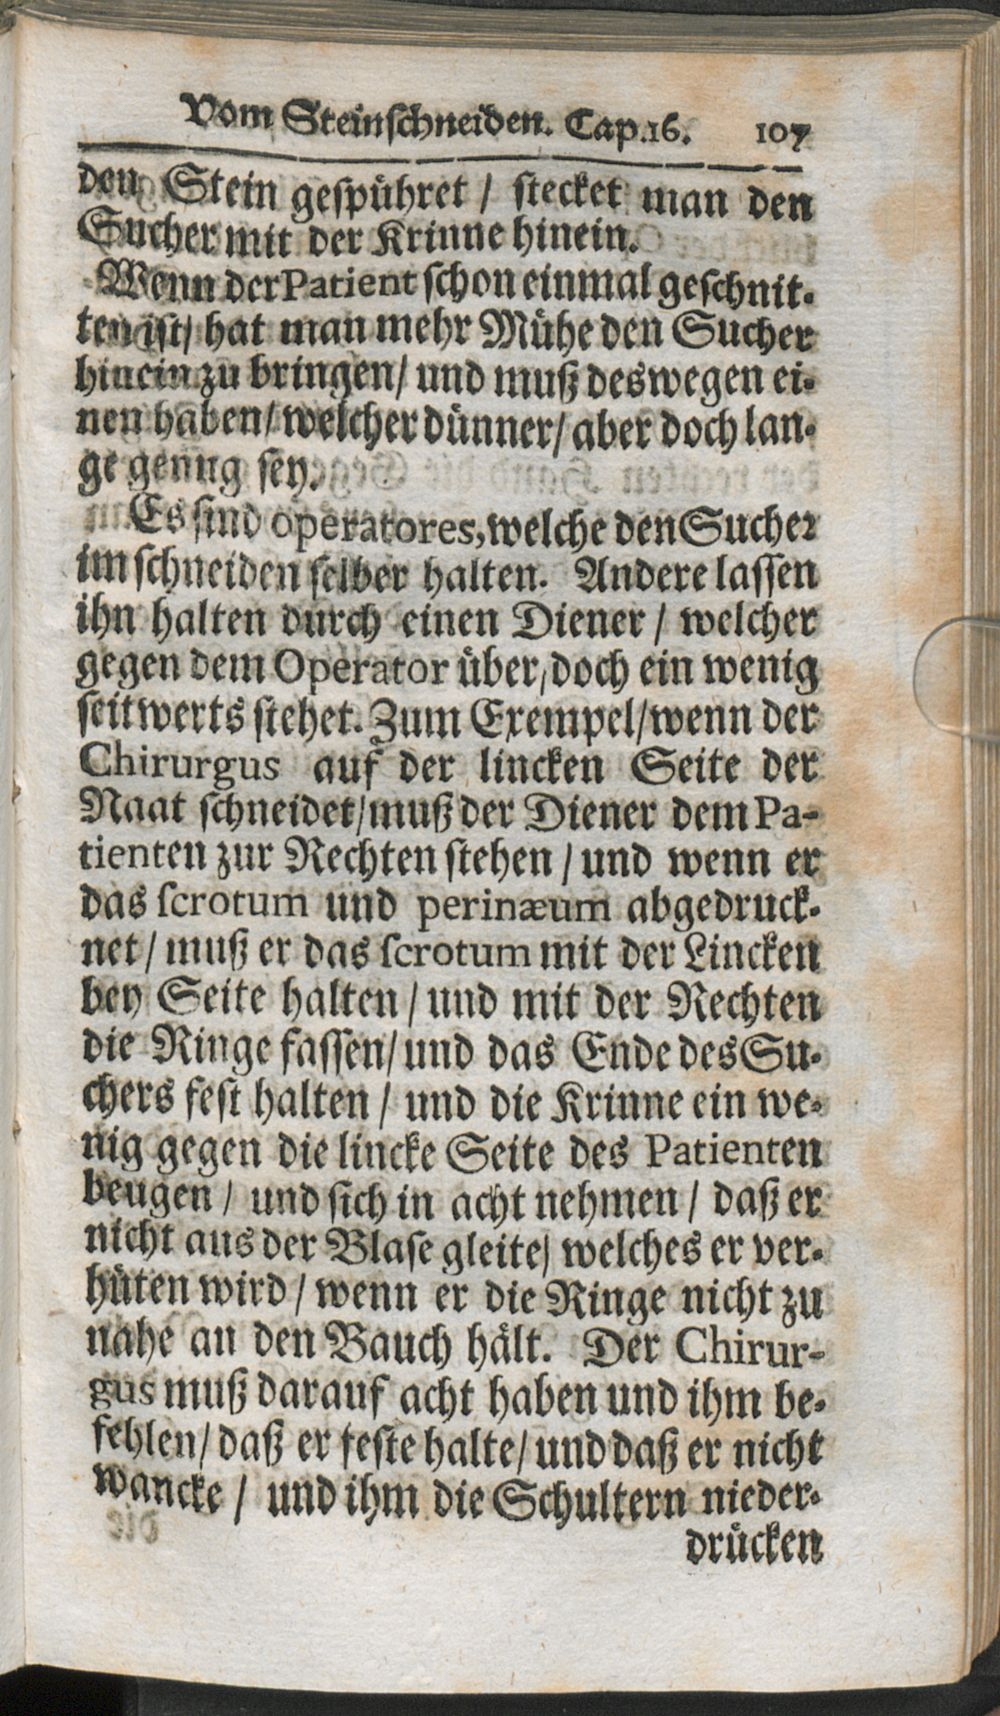 Vom Steinschneiden. Cap.16. 107
den Stein gespühret / stecket man den
Sucher mit der Krinne hinein.
Wenn der Patient schon einmal geschnit-
ten ist/ hat man mehr Mühe den Sucher
hinein zu bringen/ und muß deswegen ei-
nen haben/ welcher dünner/ aber doch lan-
ge genug sey.
Es sind operatores, welche den Sucher
im schneiden selber halten. Andere lassen
ihn halten durch einen Diener / welcher
gegen dem Operator über, doch ein wenig
seitwerts stehet. Zum Exempel/ wenn der
Chirurgus auf der lincken Seite der
Naat schneidet/ muß der Diener dem Pa-
tienten zur Rechten stehen / und wenn er
das scrotum und perinæum abgedruck-
net / muß er das scrotum mit der Lincken
bey Seite halten / und mit der Rechten
die Ringe fassen/ und das Ende des Su-
chers fest halten / und die Krinne ein we-
nig gegen die lincke Seite des Patienten
beugen / und sich in acht nehmen / daß er
nicht aus der Blase gleite/ welches er ver-
hüten wird / wenn er die Ringe nicht zu
nahe an den Bauch hält. Der Chirur-
gus muß darauf acht haben und ihm be-
fehlen/ daß er feste halte/ und daß er nicht
wancke / und ihm die Schultern nieder-
drücken